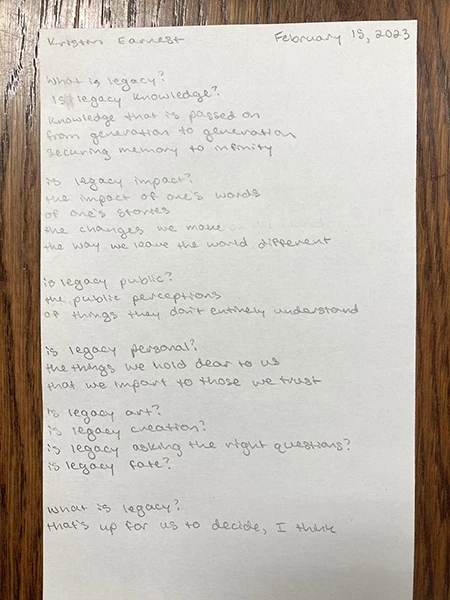 Kristin Earnest February 15, 2023
What is legacy?
Is legacy knowledge?
knowledge that is passed on
from generation to generation
securing memory to infinity
is legacy impact?
the impact of one's words
of one's stories
the changes we make
the way we leave the world different
is legacy public?
the public perceptions
of things they don't entirely understand
is legacy personal?
the things we hold dear to us
that we impart to those we trust
is legacy art?
is legacy creation?
is legacy asking the right questions?
is legacy fate?
What is legacy?
that's up for us to decide, I think